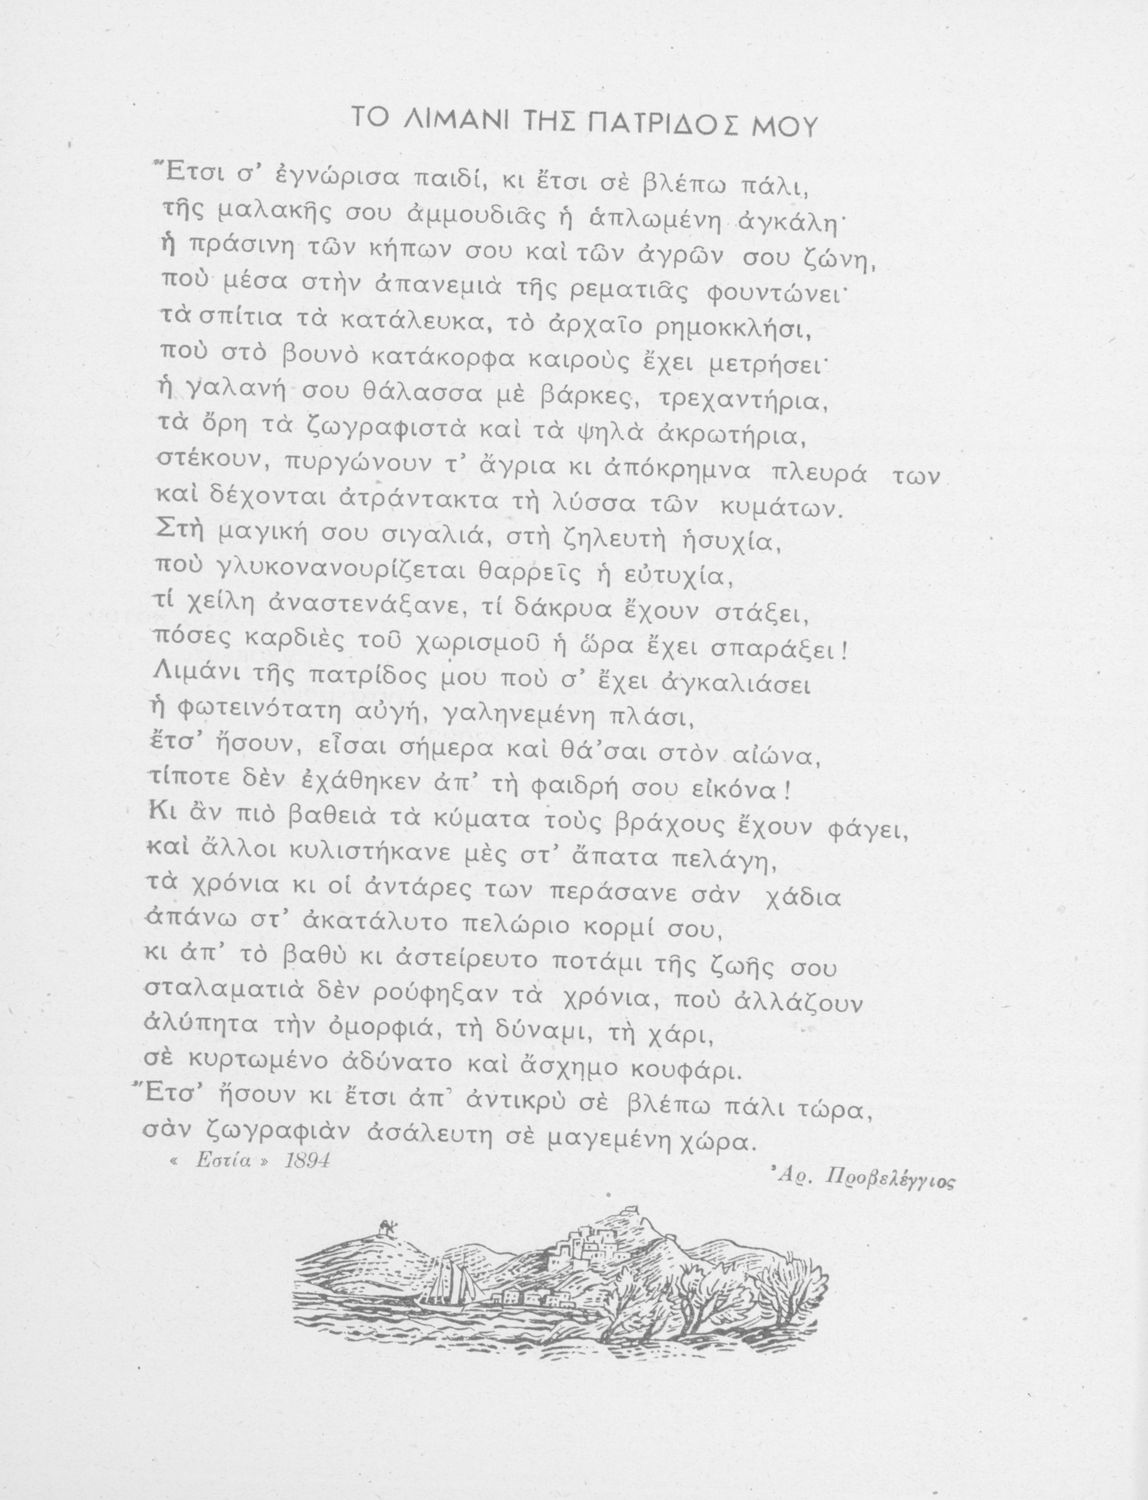 ΤΟ ΛΙΜΑΝΙ ΤΗΣ ΠΑΤΡΙΔΟΣ ΜΟΥ
Ἔτσι σ’ ἐγνώρισα παιδί, κι ἔτσι σὲ βλέπω πάλι,
τῆς μαλακῆς σου ἀμμουδιᾶς ἡ ἁπλωμένη ἀγκάλη·
ἡ πράσινη τῶν κήπων σου καὶ τῶν ἀγρῶν σου ζώνη,
ποὺ μέσα στὴν ἀπανεμιὰ τῆς ρεματιᾶς φουντώνει·
τὰ σπίτια τὰ κατάλευκα, τὸ ἀρχαῖο ρημοκκλήσι,
ποὺ στὸ βουνὸ κατάκορφα καιροὺς ἔχει μετρήσει·
ἡ γαλανή σου θάλασσα μὲ βάρκες, τρεχαντήρια,
τὰ ὄρη τὰ ζωγραφιστὰ καὶ τὰ ψηλὰ ἀκρωτήρια,
στέκουν, πυργώνουν τ’ ἄγρια κι ἀπόκρημνα πλευρά των
καὶ δέχονται ἀτράντακτα τὴ λύσσα τῶν κυμάτων.
Στὴ μαγική σου σιγαλιά, στὴ ζηλευτὴ ἡσυχία,
ποὺ γλυκονανουρίζεται θαρρεῖς ἡ εὐτυχία,
τί χείλη ἀναστενάξανε, τί δάκρυα ἔχουν στάξει,
πόσες καρδιὲς τοῦ χωρισμοῦ ἡ ὥρα ἔχει σπαράξει!
Λιμάνι τῆς πατρίδος μου ποὺ σ’ ἔχει ἀγκαλιάσει
ἡ φωτεινότατη αὐγή, γαληνεμένη πλάσι,
ἔτσ’ ἤσουν, εἶσαι σήμερα καὶ θά’σαι στὸν αἰώνα,
τίποτε δὲν ἐχάθηκεν ἀπ’ τὴ φαιδρή σου εἰκόνα!
Κι ἂν πιὸ βαθειὰ τὰ κύματα τοὺς βράχους ἔχουν φάγει,
καὶ ἄλλοι κυλιστήκανε μὲς στ’ ἄπατα πελάγη,
τὰ χρόνια κι οἱ ἀντάρες των περάσανε σὰν χάδια
ἀπάνω στ’ ἀκατάλυτο πελώριο κορμί σου,
κι ἀπ’ τὸ βαθὺ κι ἀστείρευτο ποτάμι τῆς ζωῆς σου
σταλαματιὰ δὲν ρούφηξαν τὰ χρόνια, ποὺ ἀλλάζουν
ἀλύπητα τὴν ὀμορφιά, τὴ δύναμι, τὴ χάρι,
σὲ κυρτωμένο ἀδύνατο καὶ ἄσχημο κουφάρι.
Ἔτσ’ ἤσουν κι ἔτσι ἀπ’ ἀντικρὺ σὲ βλέπω πάλι τώρα,
σὰν ζωγραφιὰν ἀσάλευτη σὲ μαγεμένη χώρα.
« Εστία » 1894
Ἀρ. Προβελέγγιος